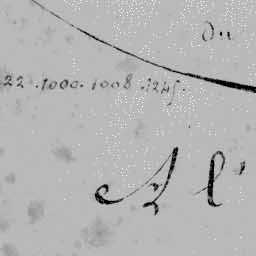 Du
22. 1000. 1008. 1245.
A l'